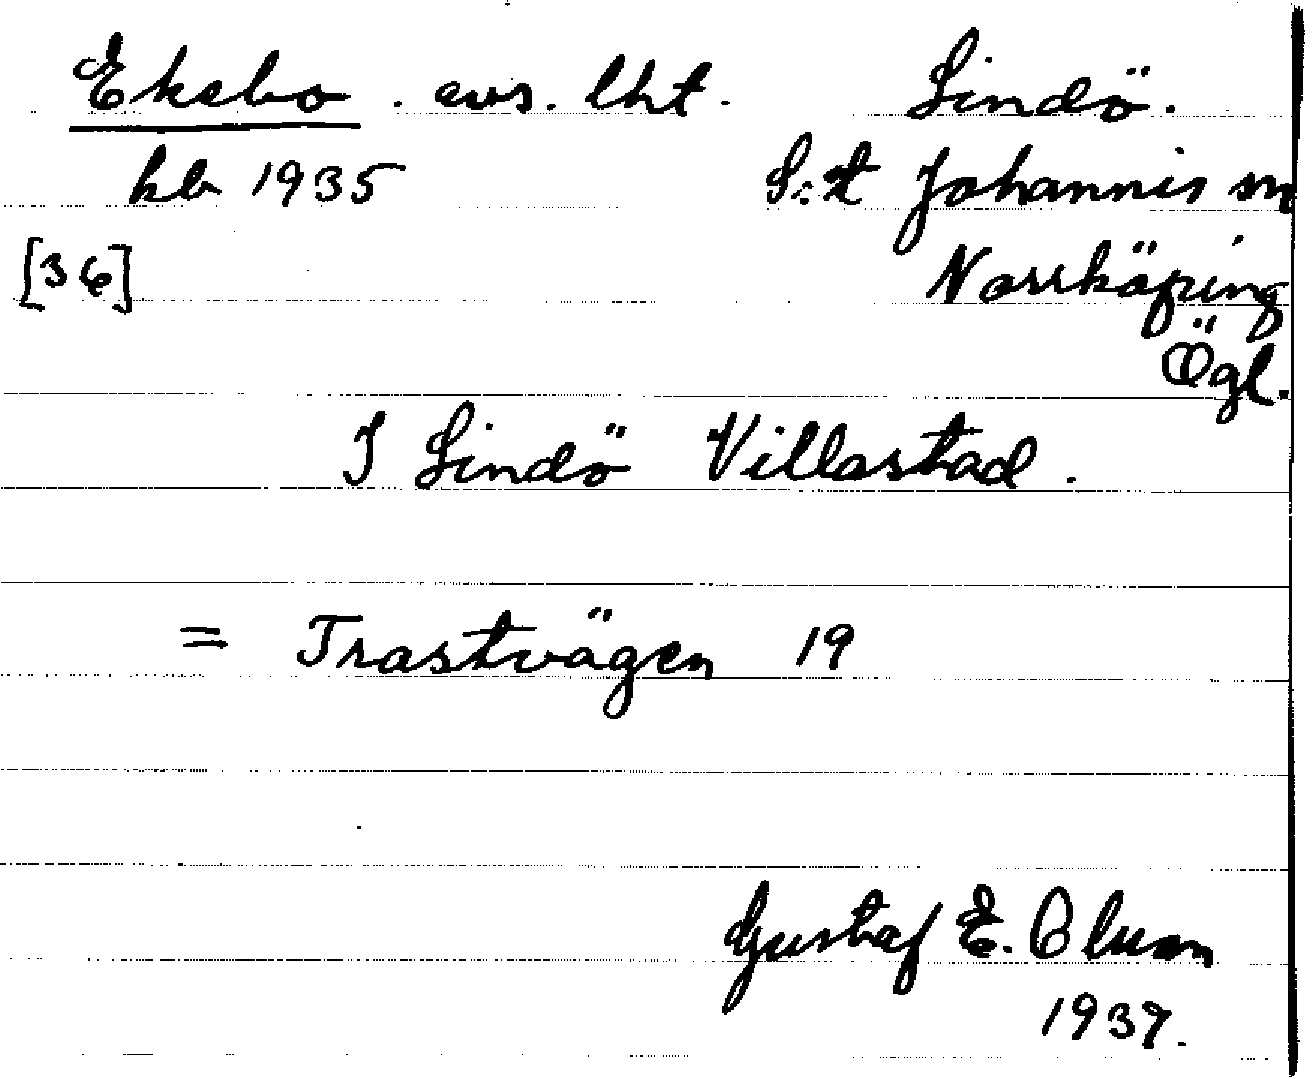 Eksbo . avs. lht. Lindö.
kb 1935 S:t Johannis sn
[36] Norrköping
Ögl.
I Lindö Villastad.
= Trastvägen 19
Gustaf E. Olsson
1937.